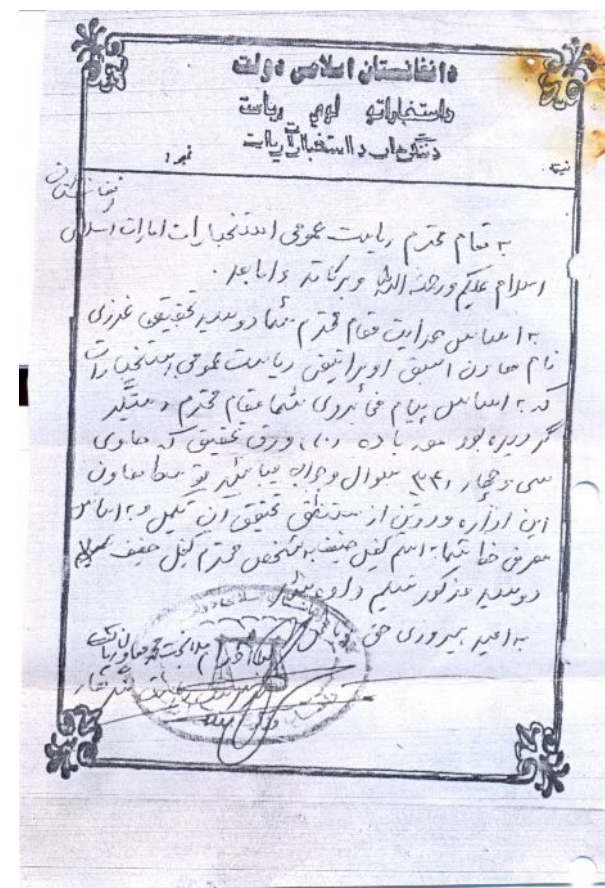 دافغانستان اسلامی دولت
داستخباراتو لوی ریاست
دننگرهار د استخباراتو ریاست
نمبر:
نیټه
افغانستان
به مقام محترم ریاست عمومی استخبارات امارات اسلامی
اسلام علیکم ورحمة الله وبرکاته واما بعد.
به اساس هدایت مقام محترم شما دوسیه تحقیقی غرزی
نام معاون اسبق اوپراتیفی ریاست عمومی استخبارات
که به اساس پیام مخابروی شما مقام محترم دستگیر
گردیده بود مورد ورق تحقیق که حاوی
سی و چهار ۳۴ سوال وجواب میباشد توسط معاون
این اداره ودوتن از مستنطق تحقیق آن تکمیل وبه اساس
معرفی خط شما به اسم کفیل حنیف به شخص محترم کفیل حنیف
دوسیه مذکور تسلیم داده
به امید پیروزی حق